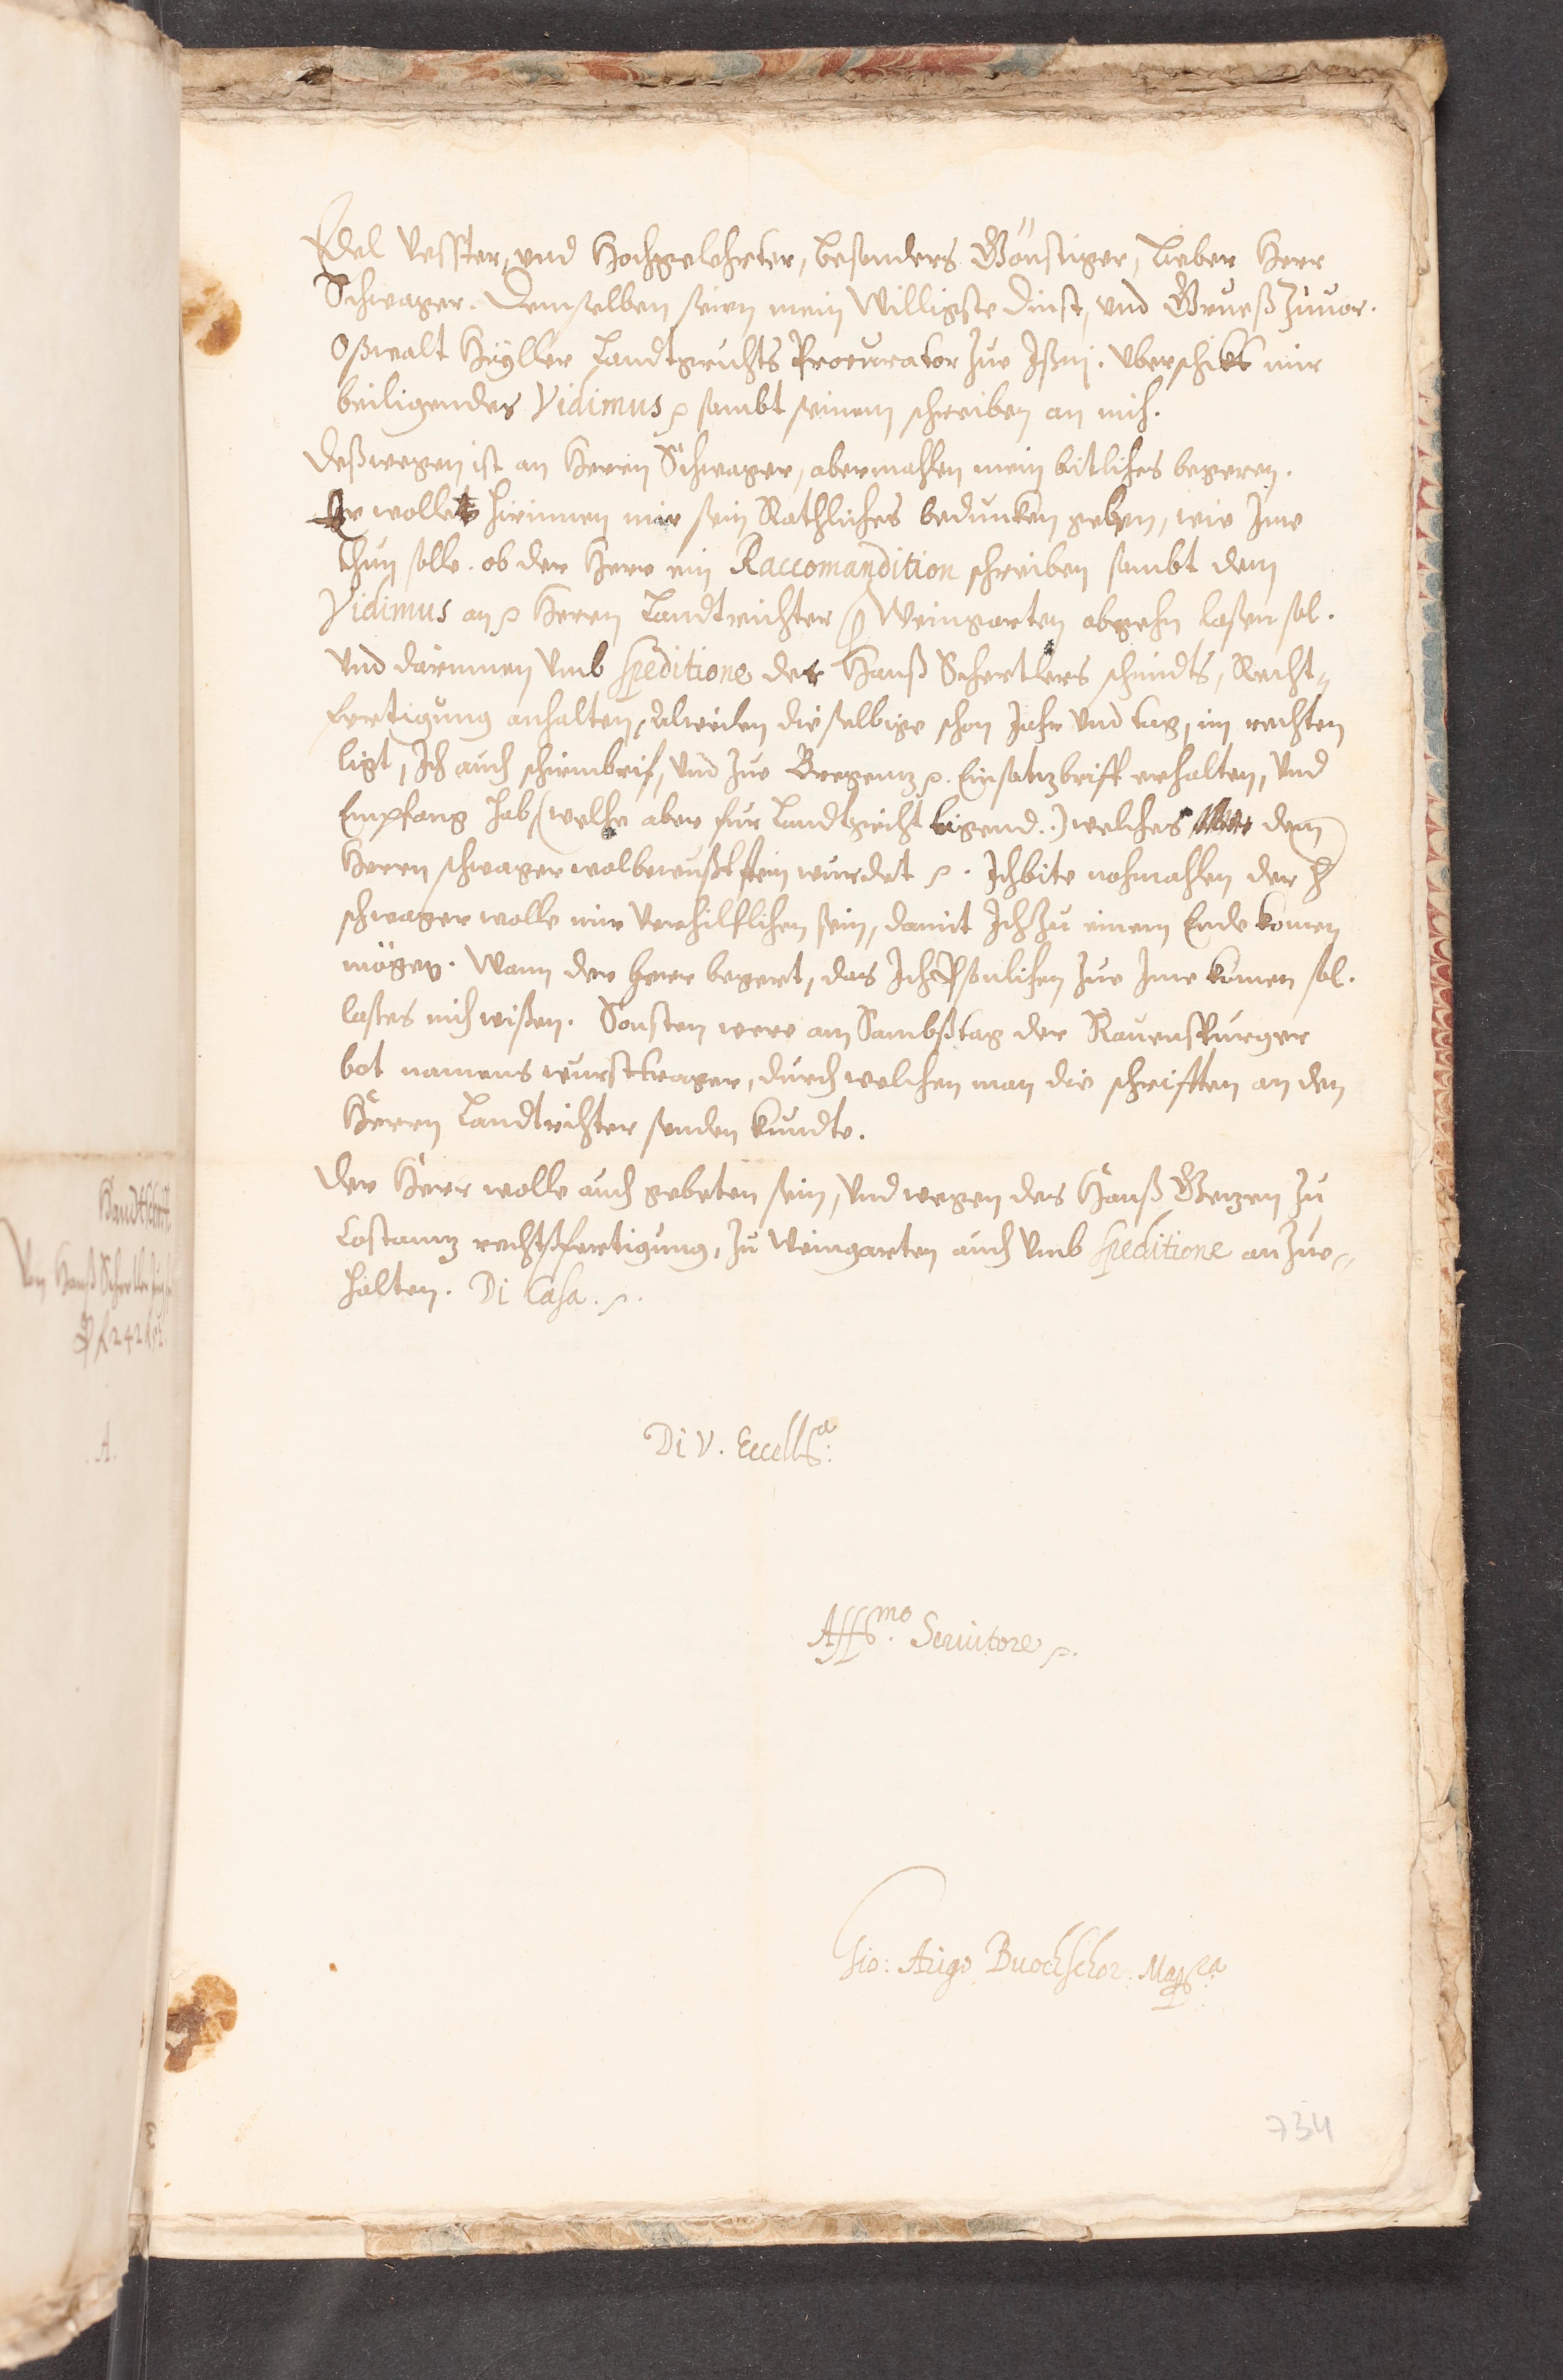 Edel Vesster, und Hochgelehrter, besonders Gönstiger, Lieber Herr
Schwager. Demselben seien mein Willigste dinst, und Grueß Zuuor.
Oßwalt Hÿller Landtgrichts Procurator Zue Ißni. Uberschikt mir
beiligendes Vidimus sambt seinem schreiben an mich.
Deßwegen ist an Herrn Schwager, abermahlen mein bitliches begeren.
Er wolle hirinnen mir sein Rathliches bedunken geben, wie Ime
thun solle. ob der Herr ein Raccomandition schreiben sambt dem
Vidimus an Herrn Landtrichter Weingarten abgehn lasen sol.
Und darinnen Umb speditione der Hanß Schertlers schmidts, Recht-
fertigung anhalten, Alweilen dieselbige schon Jahr Und tag, im rechten
ligt, Ich auch schirmbrif, Und Zue Bregentz. Einsatzbriff erhalten, Und
Empfang hab, (welche aber fur Landtgricht ligend..) welches dem
Herrn schwager wolbewußt sein wurdet. Ich bite nohmahlen der H
schwager wolle mir Verhilflichen sein, damit Ich Zu einem Ende komen
mögen. Wann der Herr begert, das Ich Psonlichen Zue Ime komen sol.
lastes mich wißen. Sonsten were am Sambßtag der Rauenspurger
bot namens wurstkrager, durch welchen man die schrifften an den
Herrn Landtrichter senden kundte.
Der Herr wolle auch gebeten sein, Und wegen des Hanß Betzen Zu
Costantz rechtßfertigung, Zu Weingarten auch Umb speditione an Zue-
halten. Di Casa.
Di V. Eccellsa:
Affsmo. Seruitore
Gio: Augo Buochschor.
734
Handtschrifft
Von Hanß Schertler
A.